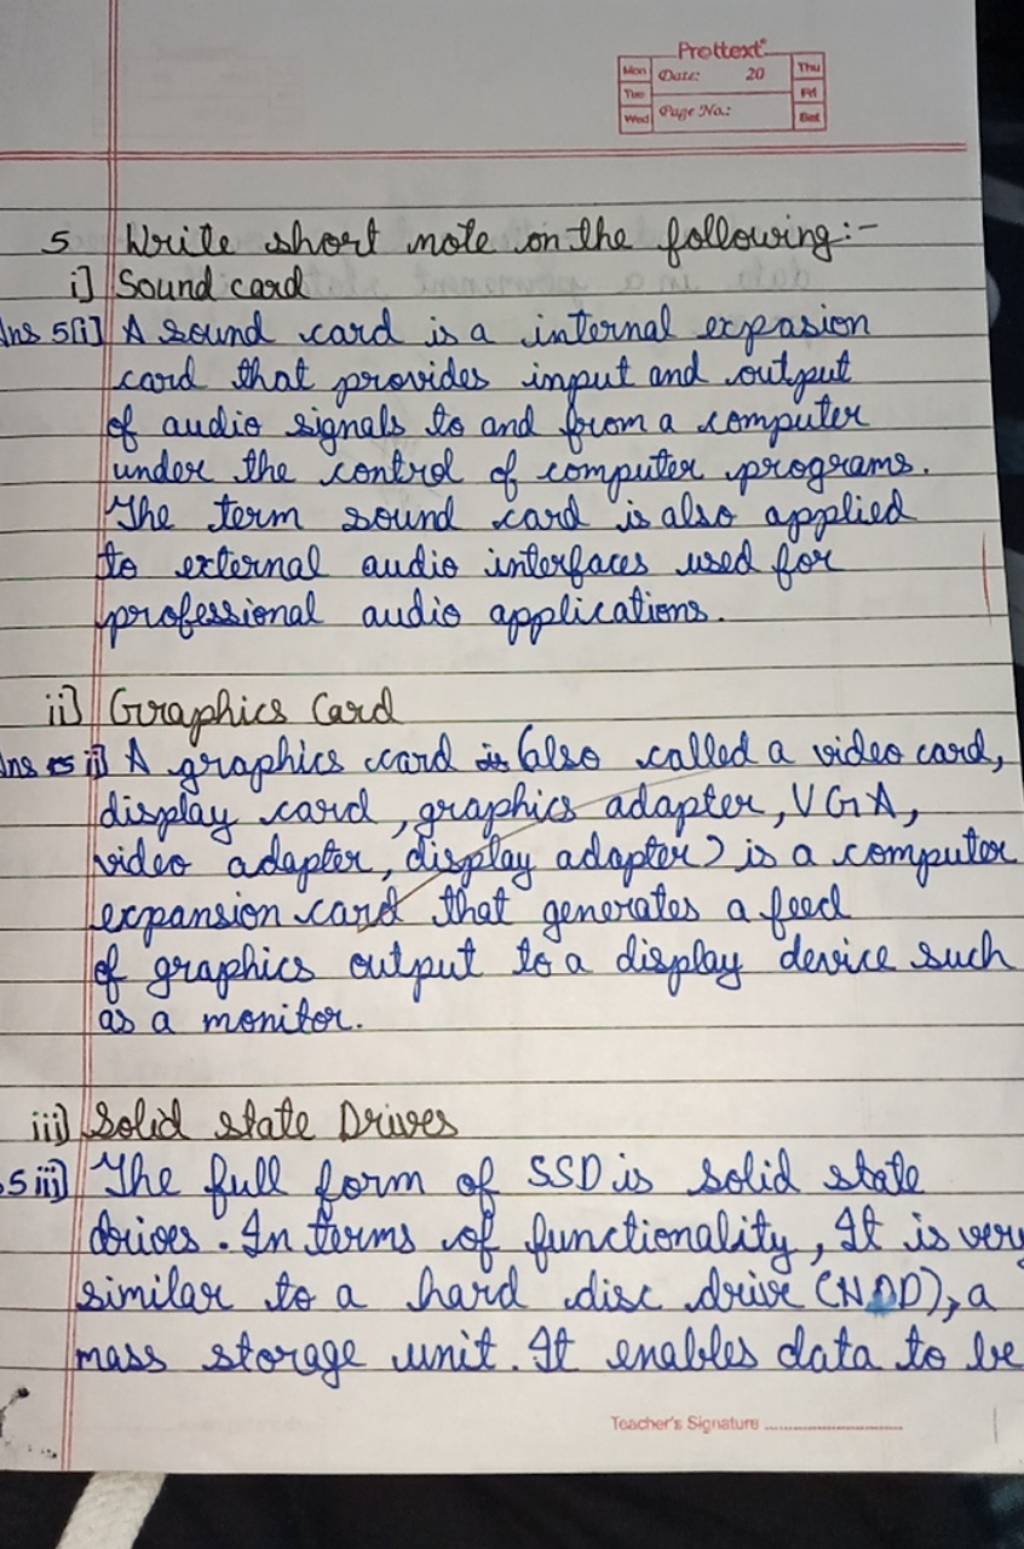 Prottext
Mon Date: 20 Thu
Tue Fri
Wed Page No.: Sat
5 Write short note on the following:-
i] Sound card
Ans 5[i] A sound card is a internal expasion
card that provides input and output
of audio signals to and from a computer
under the control of computer programs.
The term sound card is also applied
to external audio interfaces used for
professional audio applications.
ii] Graphics Card
Ans 5 ii] A graphics card is (also called a video card,
display card, graphics adapter, VGA,
video adapter, display adapter) is a computer
expansion card that generates a feed
of graphics output to a display device such
as a monitor.
iii] Solid state Drives
5 iii] The full form of SSD is solid state
drives. In terms of functionality, It is very
similar to a hard disc drive (HDD), a
mass storage unit. It enables data to be
Teacher's Signature